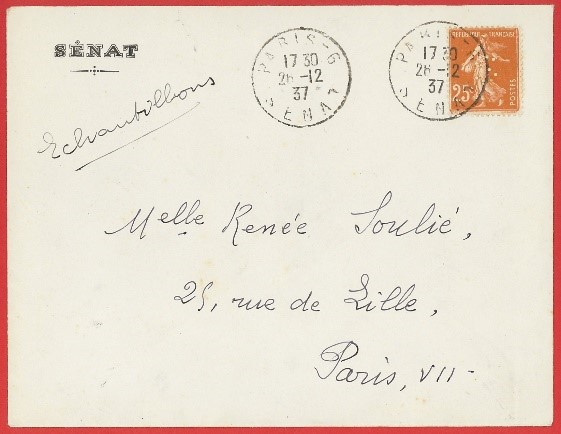 SÉNAT
PARIS-6
17 30
26 -12
37
SÉNAT
PARIS-6
17 30
26 -12
37
SÉNAT
REPUBLIQUE FRANÇAISE
25c
POSTES
Echantillons
Melle Renée Soulié,
25, rue de Lille,
Paris, VII-